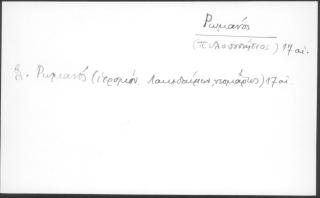 Ρωμανός
(πελοποννήσιος) 17 αἰ.
βλ. Ρωμανός (ἱερομόν. Λακεδαίμων, νομάριος) 17 αἰ